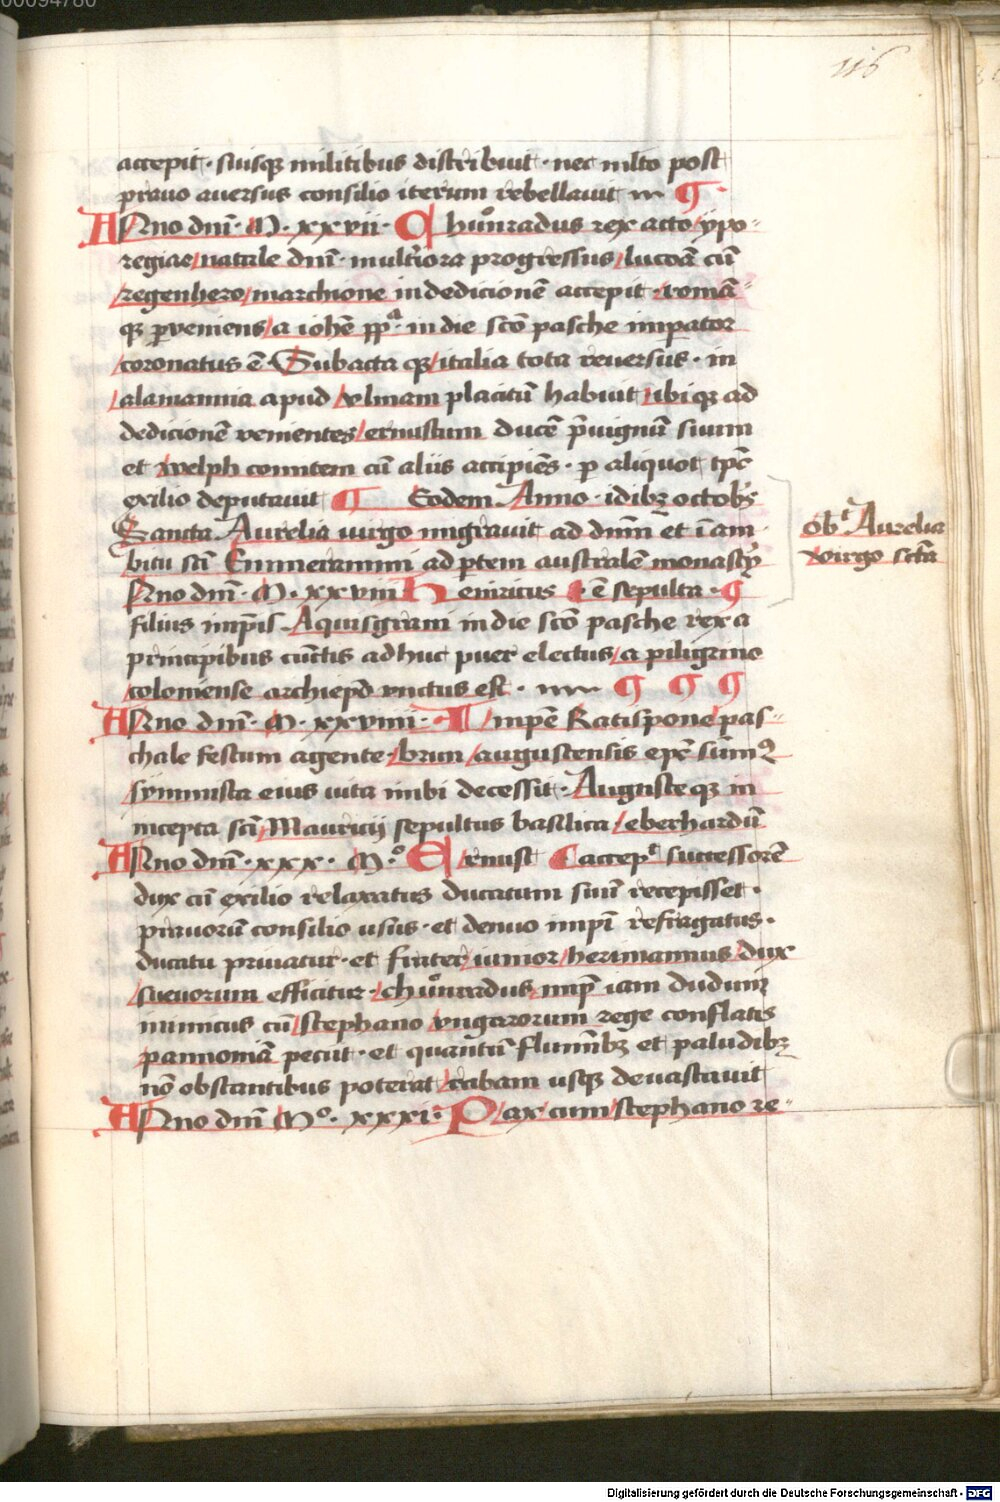 00094780
116
accepit · suisqꝫ militibus distribuit · nec mlto post
prauo auersus consilio iterum rebellauit ¶ ·
ANno dnī · M · xxvii · Chůnradus rex acto ypo-
regiae natale dnī · multiora progressus lucoā cū
regenhero marchione indedicionē accepit · romā-
qꝫ ꝑveniens a iohē pp̄ᵃ · in die scō pasche imperator
coronatus ē · Subacta qꝫ italia tota reuersus · in
alamannia apud vlmam placitū habuit ibiqꝫ ad
dedicionē venientes ernustum ducē p̄uignū suum
et welph comitem cū aliis accipiēs · ꝑ aliquot tpē
exilio deputauit ¶ Eodem Anno · idibꝫ octobꝭ
Sancta Aurelia uirgo migrauit ad dnm̄ et ī am
bitu sc̄i Emmerammi ad ꝑtem australē monastꝭ
Anno dnī · M · xxviii Heinricus · ē sepulta · ¶
filius imꝑis Aquisgrani in die scō pasche rex a
principibus cūctis adhuc puer electus a piligrino
coloniense archiepō vnctus est · ¶ ¶ ¶
ANno dnī · M · xxviiii · Impē Ratispone pas-
chale festum agente · brun augustensis epc̄ sūmꝰ
symmista eius uita inibi decessit · Auguste qꝫ in
incepta sc̄i Mauricij sepultus basilica eberhardū
ANno dnī · xxx · M · ° Ernust Caccepᵗ successorē
dux cū exilio relaxatus ducatum suū recepisset ·
prauorū consilio usus · et denuo impī refragatus ·
ducatu priuatur · et frater iunior herimannus dux
sueuorum efficitur · chůnradus imp̄ iam dudum
inimicus cū stephano vngarorum rege conflatis
pannoniā peciit · et quantū flumībꝫ et paludibꝫ
nō obstantibus poterat rabam usqꝫ deuastauit
ANno dnī M° · xxxi · Pax cum stephano re-
obᵗ Aurelia
virgo sctā
Digitalisierung gefördert durch die Deutsche Forschungsgemeinschaft - DFG